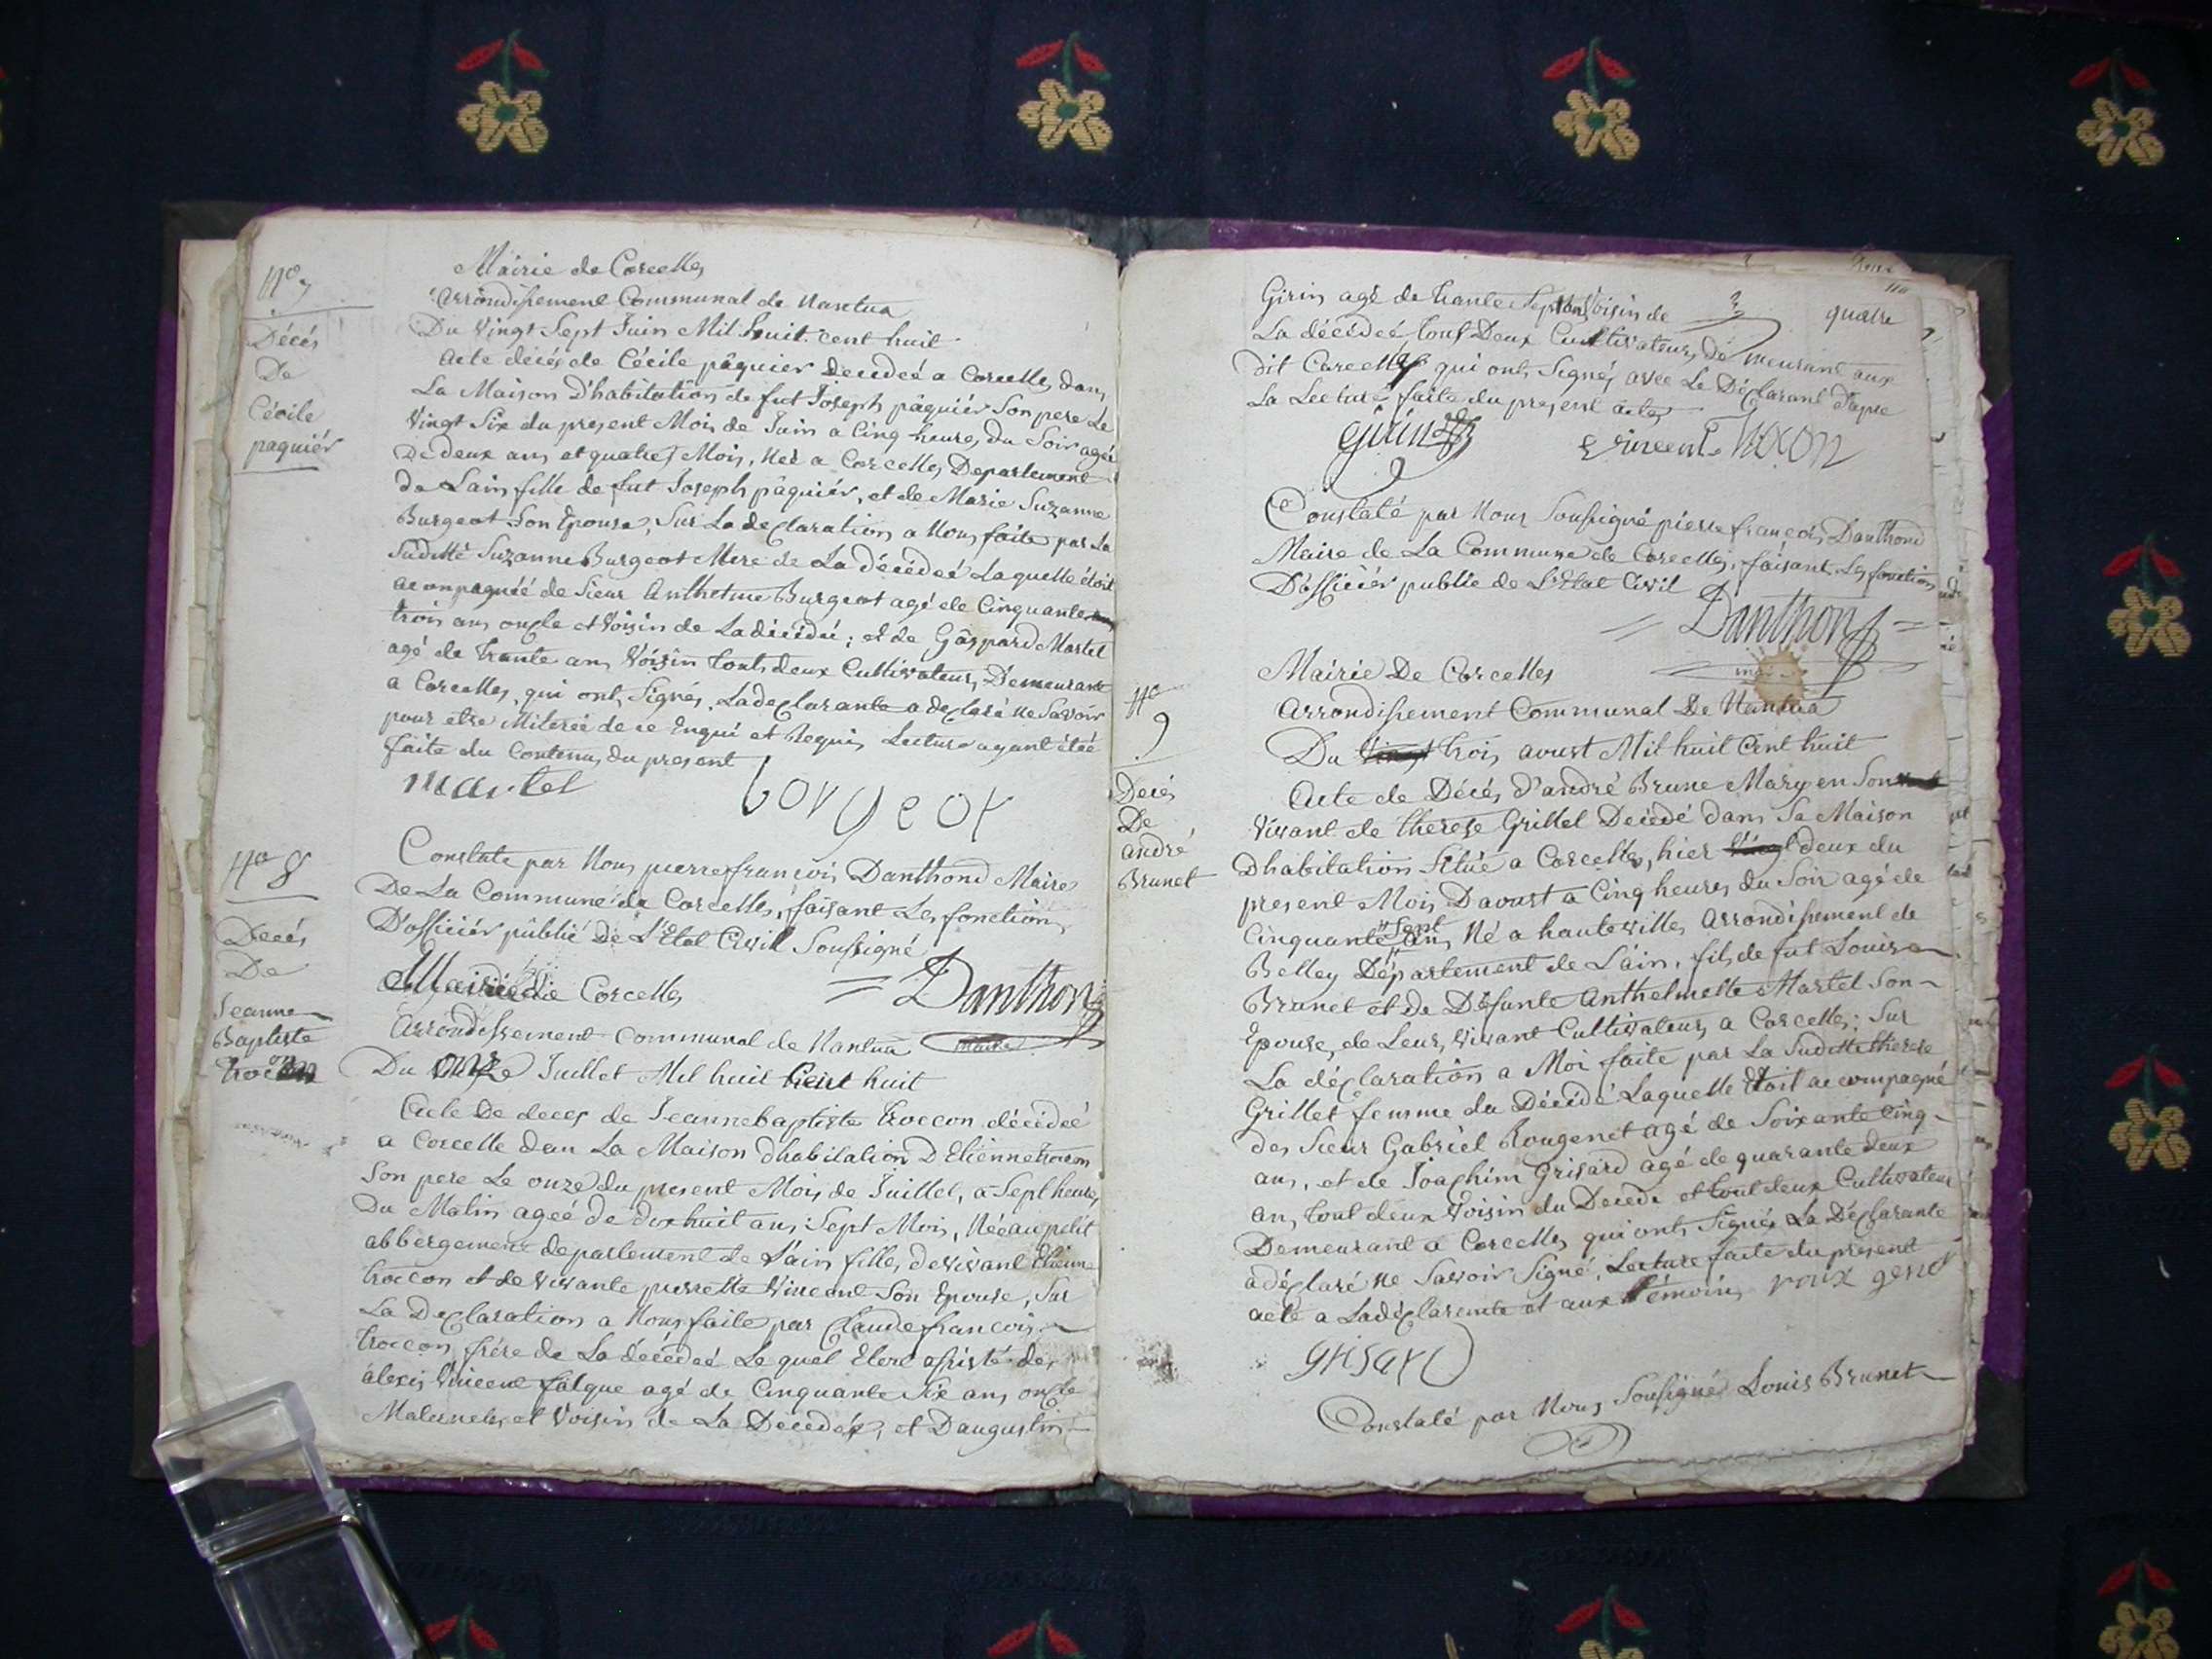 Mairie de Corcelles
Arrondissement Communal de Nantua
Du Vingt Sept Juin Mil huit cent huit
N° 7
Décés
De
Cécile
paquiér
Acte décés de Cécile pâquier Decedeé a Corcelles dans
La Maison D'habitation de fut Joseph pâquiér Son pere Le
Vingt Six du present Mois de Juin a Cinq heures du Soir ageé
De deux ans et quatres Mois, Neé a Corcelles Departement
de Lain fille de fut Joseph pâquiér, et de Marie Suzanne
Burgeot Son Epouse, Sur La declaration a Nous faite par La
Suditte Suzanne Burgeot Mere de La décédeé Laquelle étoit
acompagnéé de Sieur Anthelme Burgeot agé de Cinquante
trois ans oncle et Voisin de La décédée; et de Gâspard Martel
agé de trante ans Voisin tout deux Cultivateurs Demeurant
a Corcelles, qui ont Signés, La déclarante a declaré ne Savoir
pour etre Miterée de ce Enqui et Requis Lecture ayant étéé
faite du Contenus du present
martel borgeot
Constate par Nous pierre françois Danthond Maire
De La Commune de Corcelles, faisant Les fonction
D'officiér pûblic de L'Etat Civill Soussigné
Danthon
maire
N° 8
Decés
De
Jeanne
Baptiste
trocon
Mairie de Corcelles
Arrondissement Communal de Nantua
Du onze Juillet Mil huit Cent huit
Acte De deces de Jeanne baptiste troccon décédeé
a Corcelle dan La Maison dhabitation D Etienne trocon
Son pere Le onze du present Mois de Juillet, a Sept heures
Du Matin ageé de dix huit ans Sept Mois, Néé au petit
abbergement departement de Lain filles de vivant Etienne
troccon et de Vivante pierrette Vincent Son Epouse, Sur
La Declaration a Nous faite par Claude francois
troccon frére de La décédeé Le quel Etent assisté des
alexis Vincent falque agé de Cinquante Six ans oncle
Maternelle et Voisin de La Décédéé, et D'augustin
quatre
Girin agé de trante Sept ans Voisin de
La décédeé tout Deux Cultivateurs de meurant aux
dit Corcelles qui ont Signés avec Le Déclarant d'apre
La Lecture faite du present actes
girin vincent troccon
Constaté par Nous Soussigné pierre françois Danthond
Maire de La Commune de Corcelles, faisant Les fonction
D'officiér public de L'Etat Civil
Danthon
maire
N°
9
Decés
De
andré
Brunet
Mairie De Corcelles
Arrondissement Communal De Nantua
Du vingt trois avoust Mil huit Cent huit
Acte de Décés d'andré Brune Mary en Son
Vivant de therese Grillet Decédé dans Sa Maison
Dhabitation Sitúé a Corcelles, hier vingt deux du
present Mois Davoust a Cinq heures du Soir agé de
Cinquante Sept ans Né a hauteville, Arrondissement de
Belley Département de Lain, fils de fut Louis
Brunet et de Défunte Anthelmette Martel Son
Epouse, de Leurs Vivant Cultivateurs a Corcelles; Sur
La déclaration a Moi faite par La Suditte therese
Grillet femme du Décédé Laquelle Etoit accompagné
des Sieur Gabriel Rougenet agé de Soixante Cinq
ans, et de Joachim Grisard agé de quarante deux
ans tout deux Voisin du Decede et tout deux Cultivateur
Demeurant a Corcelles qui ont Signés La Déclarante
a déclaré Ne Savoir Signé, Lecture faite du present
acte a La déclarente et aux témoins roux genet
grisard
Constaté par Nous Soussigné Louis Brunet